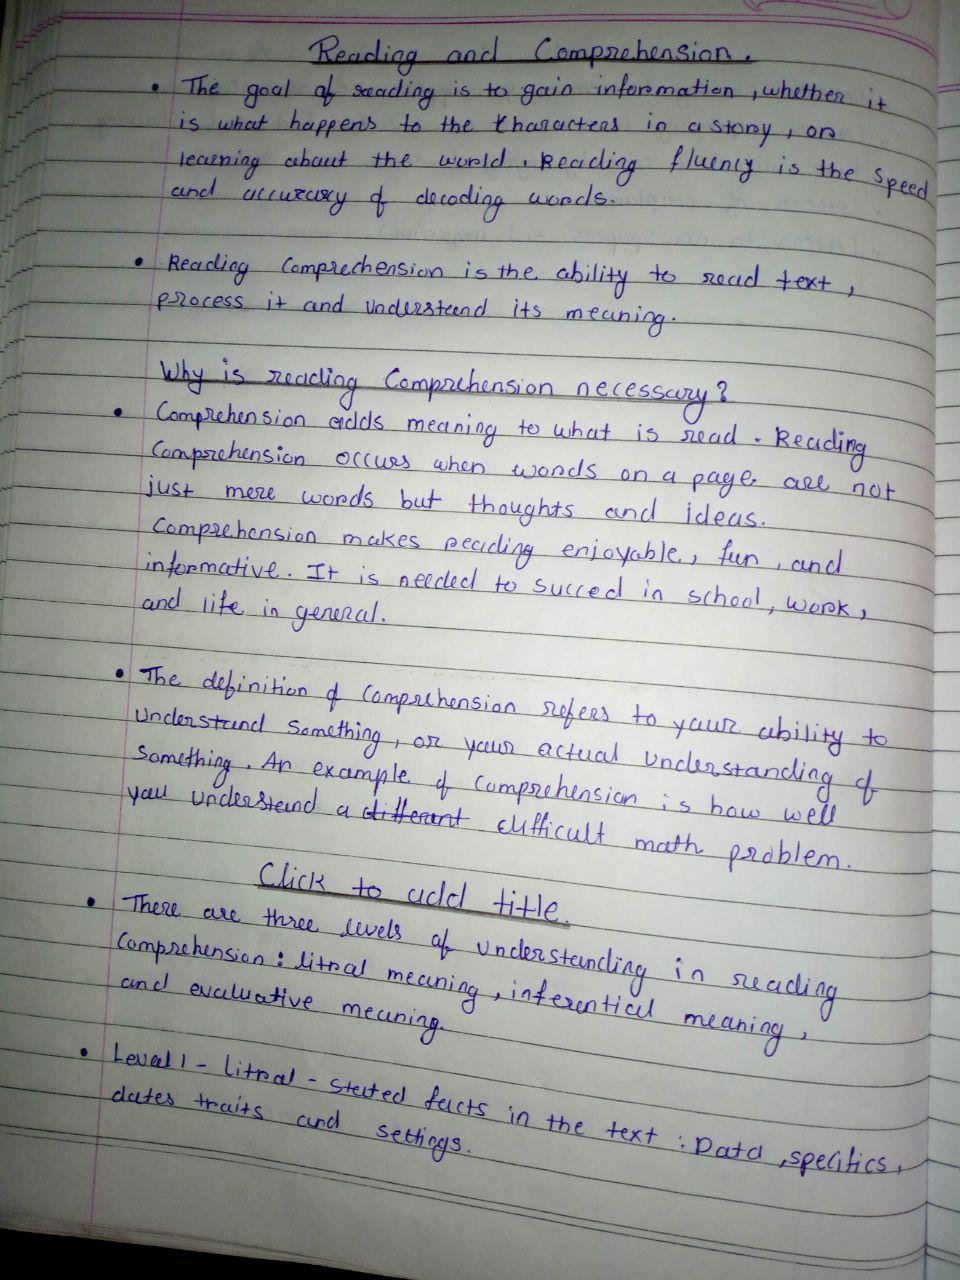 Reading and Comprehension.
• The goal of reading is to gain information, whether it
is what happens to the characters in a story, or
learning about the world. Reading fluency is the speed
and accuracy of decoding words.
• Reading Comprechension is the ability to read text,
process it and understand its meaning.
Why is reading Comprehension necessary?
• Comprehension adds meaning to what is read. Reading
Comprehension occurs when words on a page are not
just mere words but thoughts and ideas.
Comprehension makes reading enjoyable, fun, and
informative. It is needed to succed in school, work,
and life in general.
• The definition of Comprehension refers to your ability to
understand something, or your actual understanding of
something. An example of comprehension is how well
you understand a different difficult math problem.
Click to add title.
• There are three levels of understanding in reading
Comprehension: litral meaning, inferential meaning,
and evaluative meaning.
• Level 1 - litral - stated facts in the text: Data, specifics,
dates traits and settings.